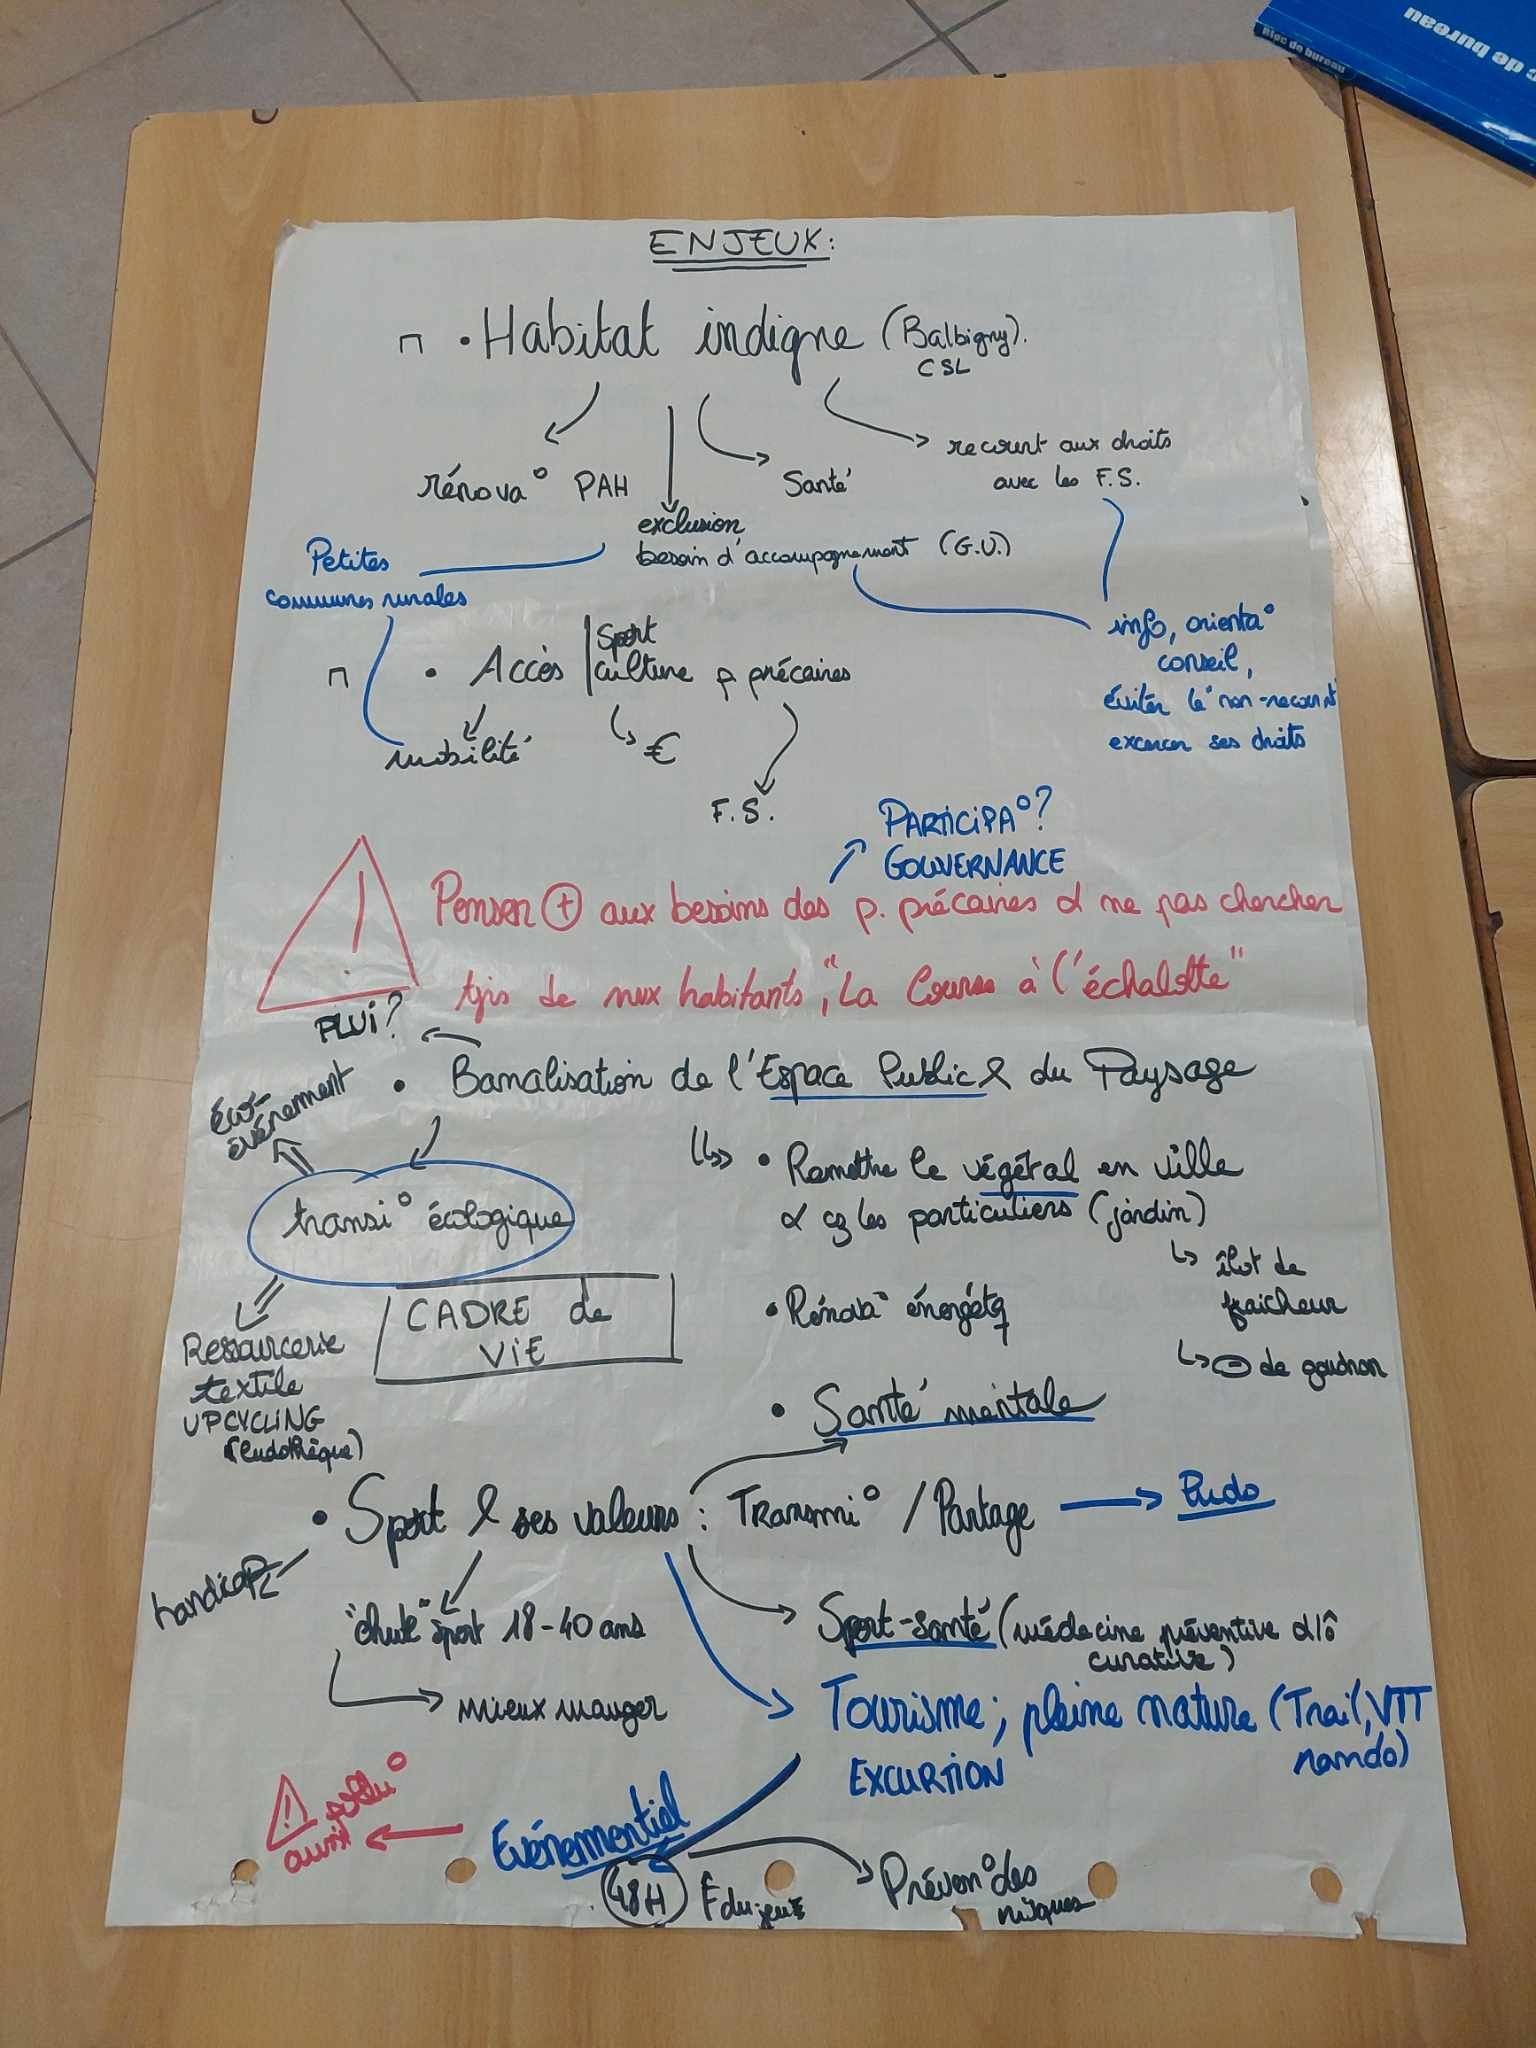 Bloc de bureau
c de bureau
ENJEUX:
• Habitat indigne (Balbigny).
CSL
rénova° PAH
exclusion
besoin d'accompagnement (G.U.)
Santé
recourt aux droits
avec les F.S.
Petites
communes rurales
info, orienta°
conseil,
éviter le "non-recourt"
excercer ses droits
• Accès | Sport
culture p précaires
mobilité
€
F.S.
PARTICIPA°?
GOUVERNANCE
Penser + aux besoins des p. précaires & ne pas chercher
tjrs de nvx habitants, "La Course à l'échalotte"
PLUi?
• Banalisation de l'Espace Public & du Paysage
éco-
événement
transi° écologique
Ressourcerie
textile
UPCYCLING
(ludothèque)
CADRE de
ViE
• Remettre le végétal en ville
& cz les particuliers (jardin)
îlot de
fraicheur
- de goudron
• Rénova° énergétq
• Santé mentale
• Sport & ses valeurs : Transmi° / Partage
handicap
"chute" sport 18-40 ans
mieux manger
Sport-santé (médecine préventive
curative)
Tourisme; pleine nature (Trail, VTT
rando)
EXCURTION
Evénementiel
pollu°
aussi
48H
F du jeu
Préven° des
risques